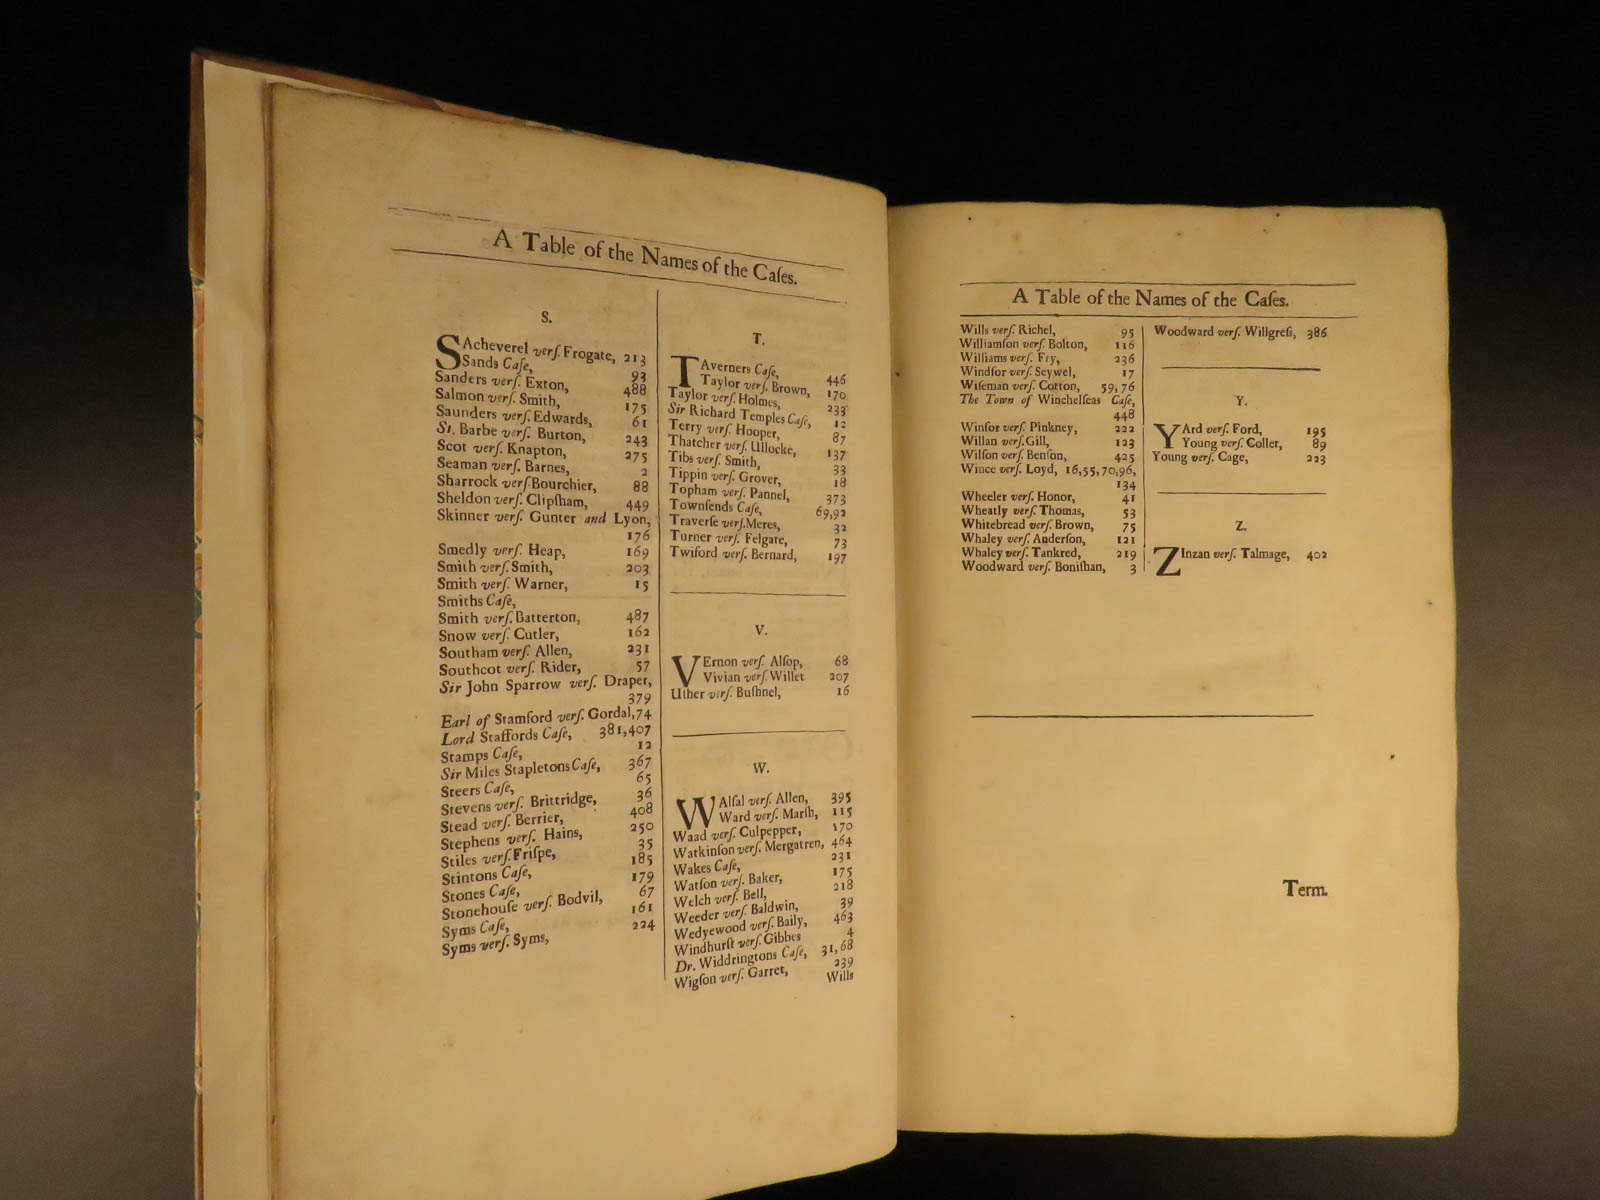 A Table of the Names of the Caſes.
S.
SAcheverel verſ. Frogate, 213
Sands Caſe, 93
Sanders verſ. Exton, 488
Salmon verſ. Smith, 175
Saunders verſ. Edwards, 61
St. Barbe verſ. Burton, 243
Scot verſ. Knapton, 275
Seaman verſ. Barnes, 2
Sharrock verſ. Bourchier, 88
Sheldon verſ. Clipſham, 449
Skinner verſ. Gunter and Lyon,
176
Smedly verſ. Heap, 169
Smith verſ. Smith, 203
Smith verſ. Warner, 15
Smiths Caſe,
Smith verſ. Batterton, 487
Snow verſ. Cutler, 162
Southam verſ. Allen, 231
Southcot verſ. Rider, 57
Sir John Sparrow verſ. Draper,
379
Earl of Stamford verſ. Gordal, 74
Lord Staffords Caſe, 381, 407
Stamps Caſe, 12
Sir Miles Stapletons Caſe, 367
Steers Caſe, 65
Stevens verſ. Brittridge, 36
Stead verſ. Berrier, 408
Stephens verſ. Hains, 250
Stiles verſ. Friſpe, 35
Stintons Caſe, 185
Stones Caſe, 179
Stonehouſe verſ. Bodvil, 67
Syms Caſe, 161
Syms verſ. Syms, 224
T.
TAverners Caſe, 446
Taylor verſ. Brown, 170
Taylor verſ. Holmes, 233
Sir Richard Temples Caſe, 12
Terry verſ. Hooper, 87
Thatcher verſ. Ullocke, 137
Tibs verſ. Smith, 33
Tippin verſ. Grover, 18
Topham verſ. Pannel, 373
Townſends Caſe, 69, 92
Traverſe verſ. Meres, 32
Turner verſ. Felgate, 73
Twiford verſ. Bernard, 197
V.
VErnon verſ. Alſop, 68
Vivian verſ. Willet 207
Uther verſ. Buſhnel, 16
W.
WAlſal verſ. Allen, 395
Ward verſ. Marſh, 115
Waad verſ. Culpepper, 170
Watkinſon verſ. Mergatren, 464
Wakes Caſe, 231
Watſon verſ. Baker, 175
Welch verſ. Bell, 218
Weeder verſ. Baldwin, 39
Wedyewood verſ. Baily, 463
Windhurſt verſ. Gibbes 4
Dr. Widdringtons Caſe, 31, 68
Wigſon verſ. Garret, 239
Wills
A Table of the Names of the Caſes.
Wills verſ. Richel, 95
Williamſon verſ. Bolton, 116
Williams verſ. Fry, 236
Windſor verſ. Seywel, 17
Wiſeman verſ. Cotton, 59, 76
The Town of Winchelſeas Caſe,
448
Winſor verſ. Pinkney, 222
Willan verſ. Gill, 123
Wilſon verſ. Benſon, 425
Wince verſ. Loyd, 16, 55, 70, 96,
134
Wheeler verſ. Honor, 41
Wheatly verſ. Thomas, 53
Whitebread verſ. Brown, 75
Whaley verſ. Anderſon, 121
Whaley verſ. Tankred, 219
Woodward verſ. Boniſhan, 3
Woodward verſ. Willgreſs, 386
Y.
YArd verſ. Ford, 195
Young verſ. Collet, 89
Young verſ. Cage, 223
Z.
ZInzan verſ. Talmage, 402
Term.